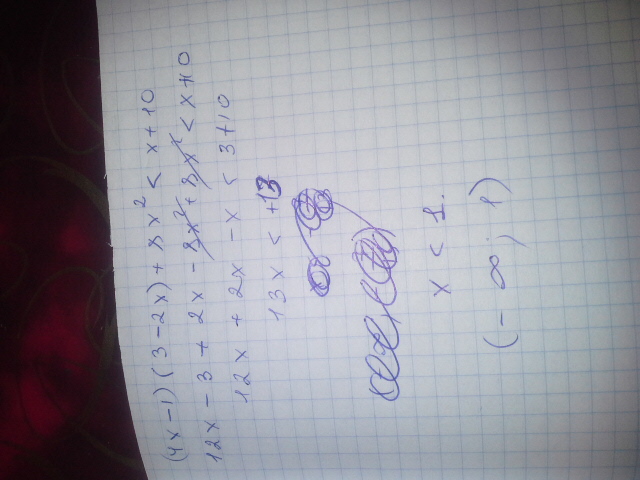 (4x-1)(3-2x)+8x² < x+10
12x-3+2x-8x²+8x² < x+10
12x+2x-x < 3+10
13x < +13
x < 1.
(-∞; 1)